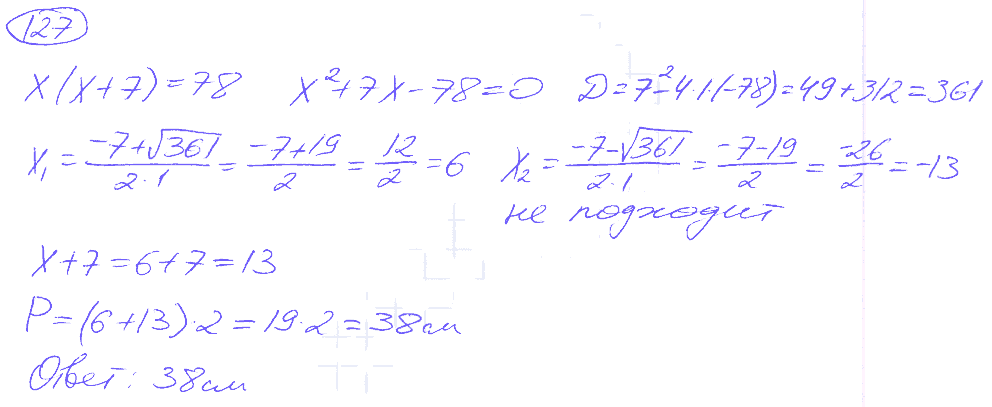 127
x(x+7)=78 x²+7x-78=0 D=7²-4·1·(-78)=49+312=361
x₁=(-7+√361)/(2·1)=(-7+19)/2=12/2=6 x₂=(-7-√361)/(2·1)=(-7-19)/2=-26/2=-13
не подходит
x+7=6+7=13
P=(6+13)·2=19·2=38см
Ответ: 38см